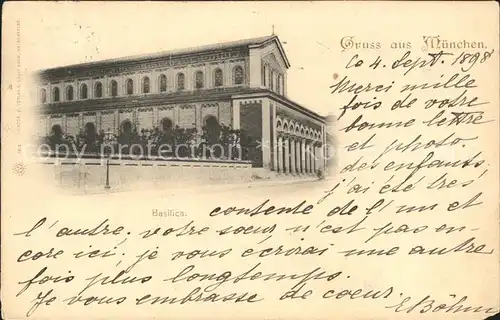 Gruss aus München.
Co 4. Sept. 1898
Merci mille
fois de votre
bonne lettre
et photo.
des enfants.
j'ai été très
contente de l'un et
l'autre. votre sœur n'est pas en-
core ici, je vous écrirai une autre
fois plus longtemps.
Je vous embrasse de cœur.
Basilica.